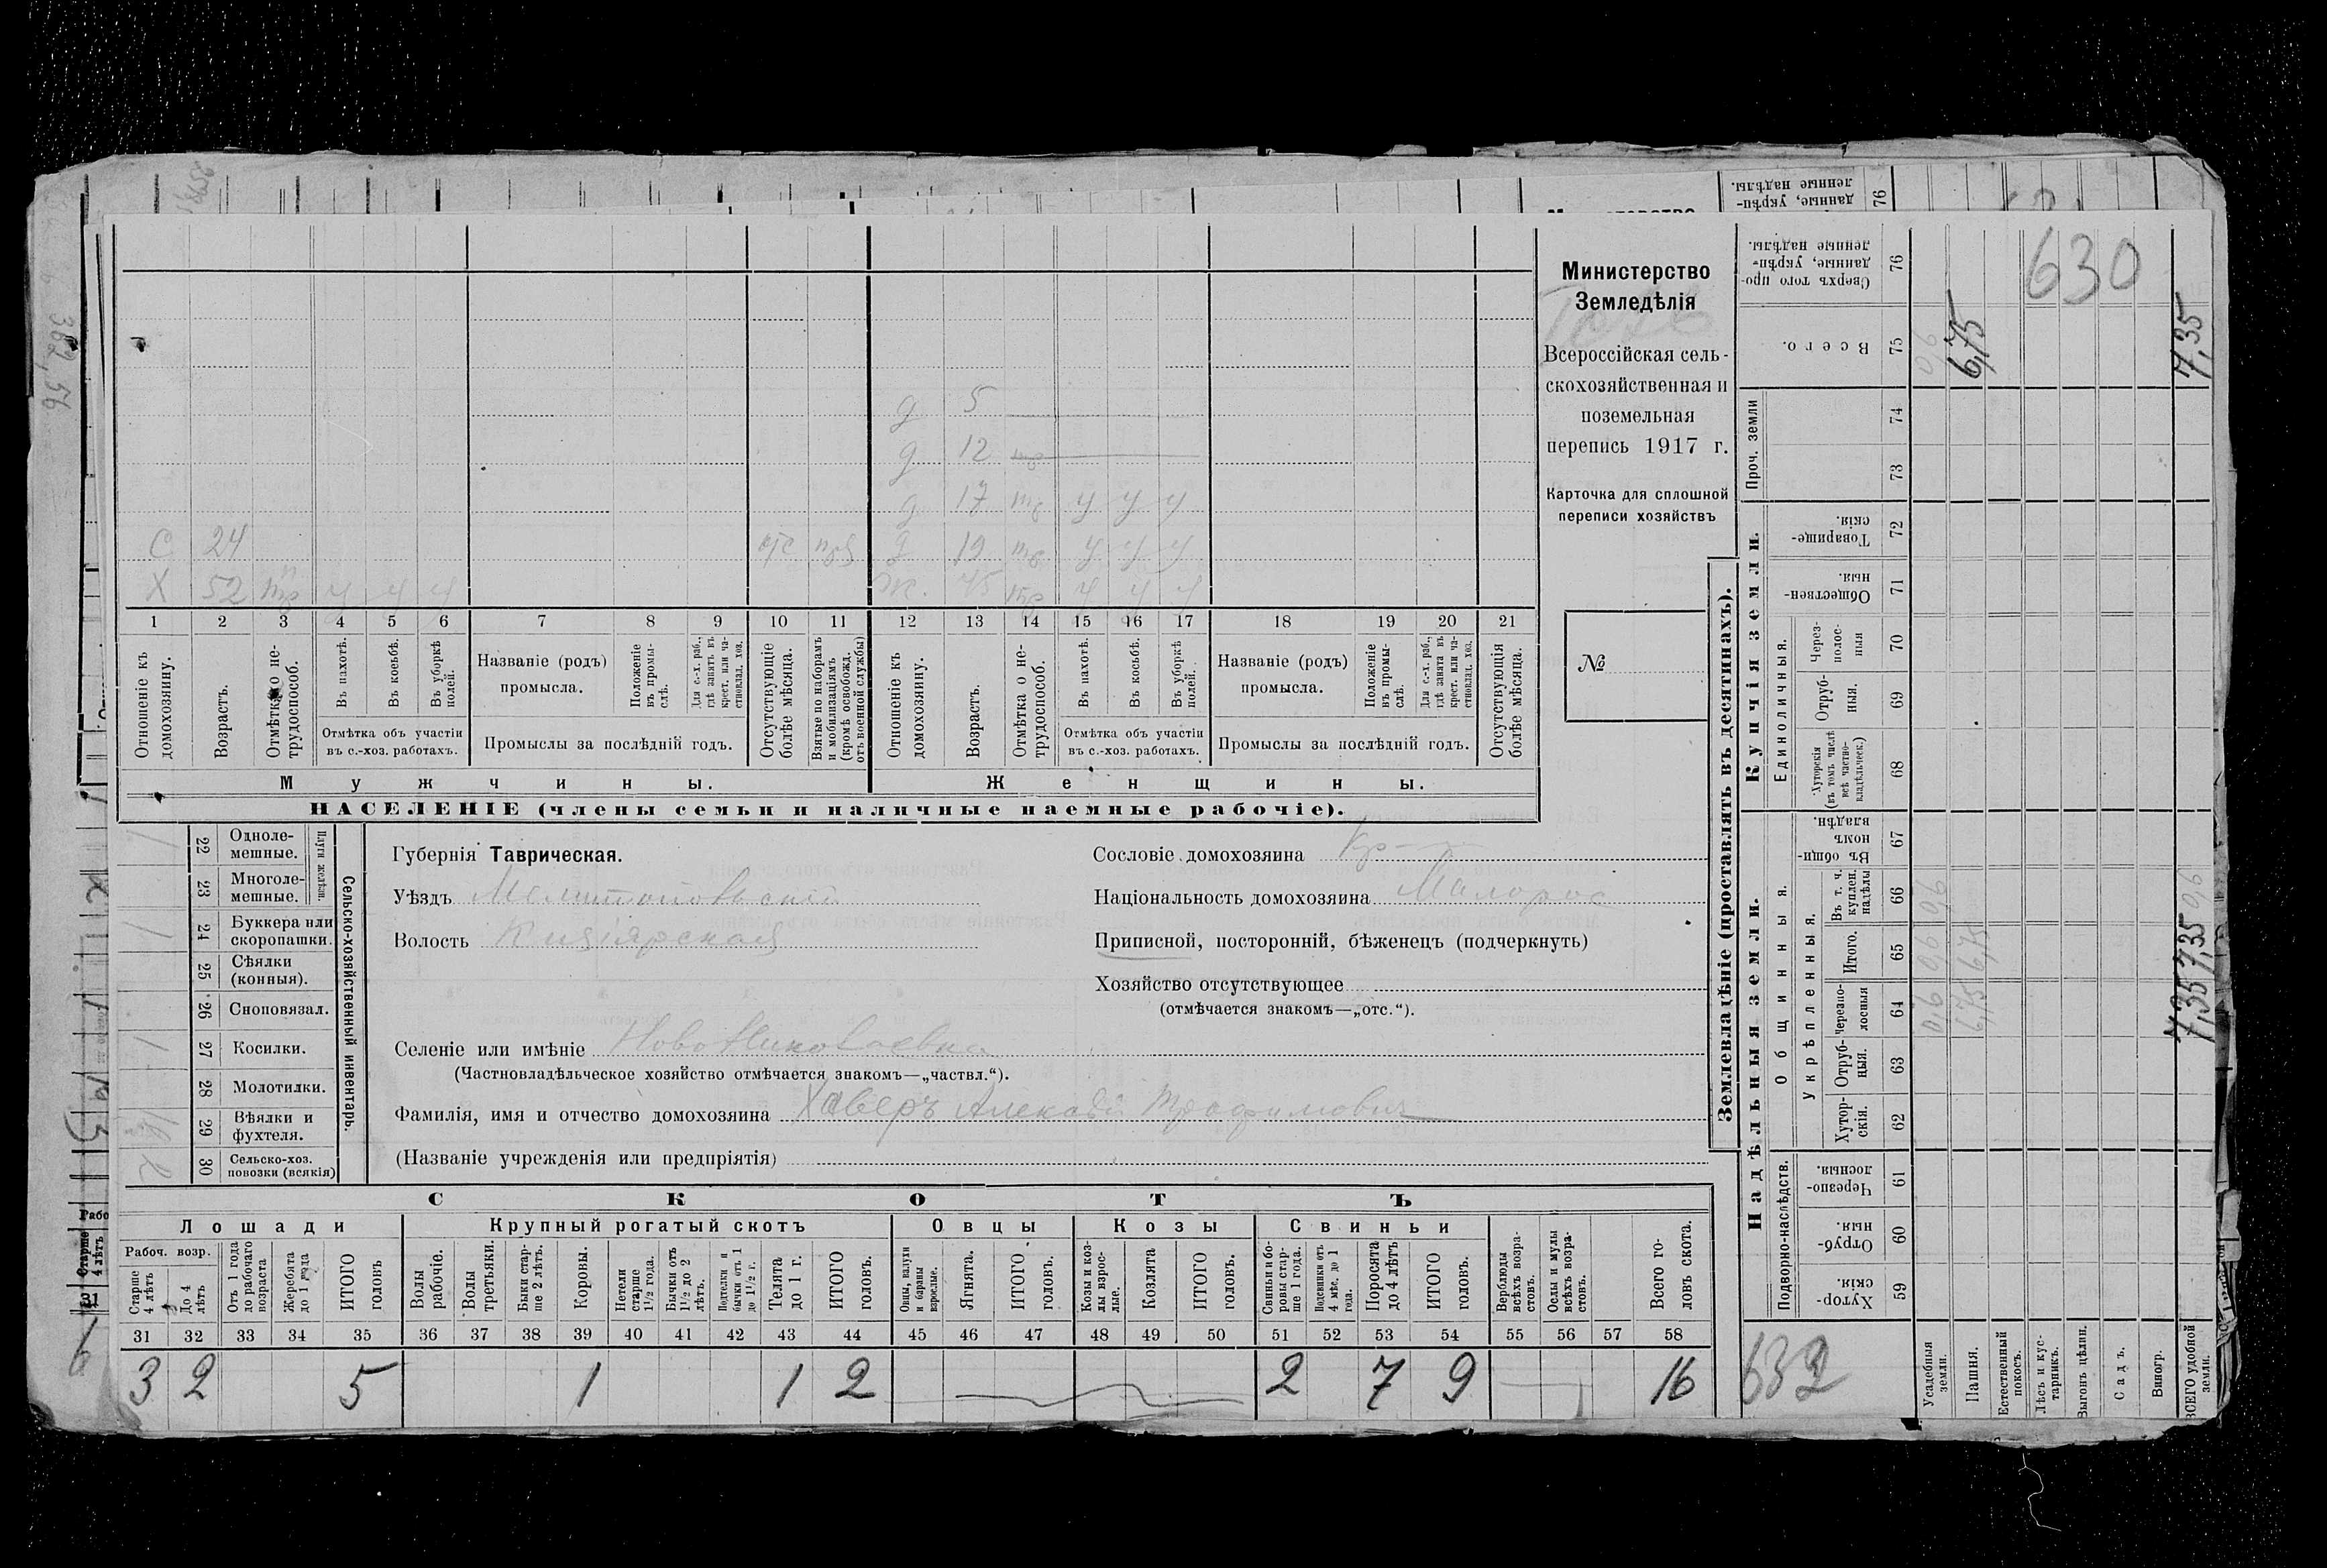 Министерство
Земледѣлія
Всероссійская сель-
скохозяйственная и
поземельная
перепись 1917 г.
Карточка для сплошной
переписи хозяйствъ
№
630
д 5
д 12
д 17 тр у у у
С 24 отс д 19 тр у у у
Х 52 тр у у у ж. 45 тр у у у
1 2 3 4 5 6 7 8 9 10 11 12 13 14 15 16 17 18 19 20 21
Отношеніе къ домохозяину.
Возрастъ.
Отмѣтка о не-трудоспособ.
Въ пахотѣ.
Въ косьбѣ.
Въ уборкѣ полей.
Отмѣтка объ участіи въ с.-хоз. работахъ.
Названіе (родъ) промысла.
Положеніе въ промы-слѣ.
Для с.-х. раб., гдѣ занятъ въ крест. или ча-стновлад. хоз.
Промыслы за послѣдній годъ.
Отсутствующіе болѣе мѣсяца.
Взятые по наборамъ и мобилизаціямъ (кромѣ освобожд. отъ военной службы)
Отношеніе къ домохозяину.
Возрастъ.
Отмѣтка о не-трудоспособ.
Въ пахотѣ.
Въ косьбѣ.
Въ уборкѣ полей.
Отмѣтка объ участіи въ с.-хоз. работахъ.
Названіе (родъ) промысла.
Положеніе въ промы-слѣ.
Для с.-х. раб., гдѣ занята въ крест. или ча-стновлад. хоз.
Промыслы за послѣдній годъ.
Отсутствующія болѣе мѣсяца.
Мужчины. Женщины.
НАСЕЛЕНІЕ (члены семьи и наличные наемные рабочіе).
Сельско-хозяйственный инвентарь.
Плуги желѣзн.
22 Одноле-мешные.
23 Многоле-мешные.
24 Буккера или скоропашки.
25 Сѣялки (конныя).
26 Сноповязал.
27 Косилки.
28 Молотилки.
29 Вѣялки и фухтеля.
30 Сельско-хоз. повозки (всякія)
Губернія Таврическая.
Уѣздъ Мелитопольскій
Волость Кизіярская
Сословіе домохозяина Кр
Національность домохозяина Малорос
Приписной, посторонній, бѣженецъ (подчеркнуть)
Хозяйство отсутствующее
(отмѣчается знакомъ—„отс.“).
Селеніе или имѣніе Ново Николаевка
(Частновладѣльческое хозяйство отмѣчается знакомъ—„частвл.“).
Фамилія, имя и отчество домохозяина Хаверъ Алексѣй Трофимовичъ
(Названіе учрежденія или предпріятія)
СКОТЪ
Лошади Крупный рогатый скотъ Овцы Козы Свиньи
Рабоч. возр.
Старше 4 лѣтъ
До 4 лѣтъ
Отъ 1 года до рабочаго возраста
Жеребята до 1 года
ИТОГО головъ
Волы рабочіе.
Волы третьяки.
Быки стар-ше 2 лѣтъ.
Коровы.
Нетели старше 1½ года.
Бычки отъ 1½ до 2 лѣтъ.
Подтелки и бычки отъ 1 до 1½ г.
Телята до 1 г.
ИТОГО головъ.
Овцы, валухи и бараны взрослые.
Ягнята.
ИТОГО головъ.
Козы и коз-лы взрос-лые.
Козлята
ИТОГО головъ.
Свиньи и бо-ровы стар-ше 1 года.
Подсвинки отъ 4 мѣс. до 1 года.
Поросята до 4 лѣтъ
ИТОГО головъ.
Верблюды всѣхъ возра-стовъ.
Ослы и мулы всѣхъ возра-стовъ.
Всего го-ловъ скота.
31 32 33 34 35 36 37 38 39 40 41 42 43 44 45 46 47 48 49 50 51 52 53 54 55 56 57 58
3 2 5 1 1 2 2 7 9 16
Землевладѣніе (проставлять въ десятинахъ).
Надѣльныя земли. Купчія земли. Проч. земли
Подворно-наслѣдств.
Общинныя.
Укрѣпленныя.
Единоличныя.
Хутор-скія. 59
Отруб-ныя. 60
Черезпо-лосныя. 61
Хутор-скія. 62
Отруб-ныя. 63
Черезпо-лосныя 64
Итого. 65
Въ т. ч. куплен. надѣлы 66
Въ общин-номъ владѣн. 67
Хуторскія (въ томъ числѣ всѣ частно-владѣльческ.) 68
Отруб-ныя. 69
Через-полос-ныя 70
Обществен-ныя. 71
Товарище-скія. 72
73
74
Всего. 75
Сверхъ того про-данные, укрѣп-ленные надѣлы. 76
Усадебныя земли. 0,6 0,6 0,6 0,6
Пашня. 6,75 6,75 6,75
Естественный покосъ.
Лѣсъ и кус-тарникъ.
Выгонъ цѣлин.
Садъ.
Виногр.
ВСЕГО удобной земли. 7,35 7,35 0,6 7,35
632
382,56